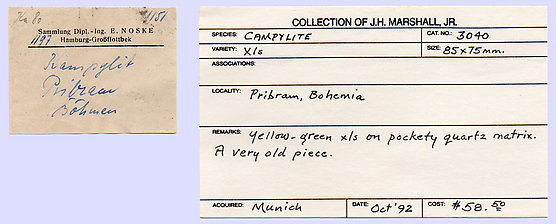 Sammlung Dipl.-Ing. E. NOSKE
1197 Hamburg-Großflottbek
Kampylit
Pribram
Böhmen
COLLECTION OF J.H. MARSHALL, JR.
SPECIES: CAMPYLITE CAT. NO.: 3040
VARIETY: Xls SIZE: 85x75mm.
ASSOCIATIONS:
LOCALITY: Pribram, Bohemia
REMARKS: Yellow-green xls on pockety quartz matrix.
A very old piece.
ACQUIRED: Munich DATE: Oct '92 COST: $58.50